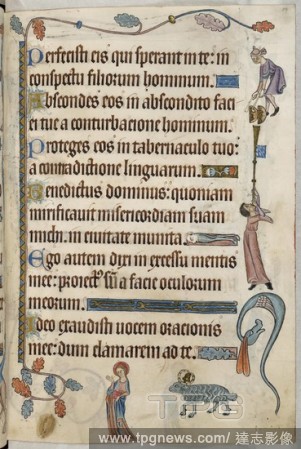 Perfecisti eis qui sperant in te: in
conspectu filiorum hominum.
Abscondes eos in abscondito faci
ei tue a conturbacione hominum.
Proteges eos in tabernaculo tuo:
a contradictione linguarum.
Benedictus dominus: quoniam
mirificauit misericordiam suam
michi. in ciuitate munita.
Ego autem dixi in excessu mentis
mee: proiectus sum a facie oculorum
meorum.
Ideo exaudisti uocem oracionis
mee: dum clamarem ad te.
TPG
www.tpgnews.com/ 達志影像